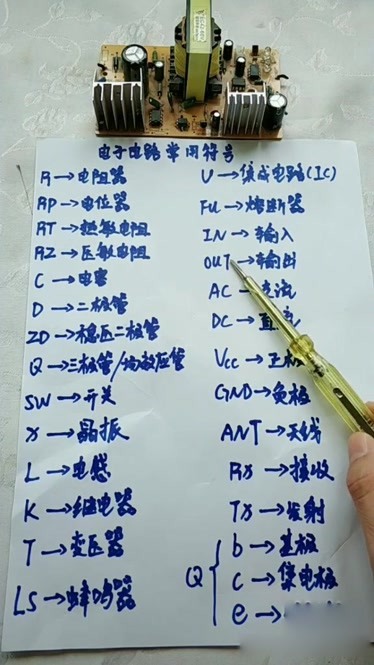 电子电路常用符号
R→电阻器
RP→电位器
RT→热敏电阻
RZ→压敏电阻
C→电容
D→二极管
ZD→稳压二极管
Q→三极管/场效应管
SW→开关
X→晶振
L→电感
K→继电器
T→变压器
LS→蜂鸣器
U→集成电路(IC)
FU→熔断器
IN→输入
OUT→输出
AC→流
DC→直流
Vcc→正极
GND→负极
ANT→天线
RX→接收
TX→发射
Q
b→基极
c→集电极
e→